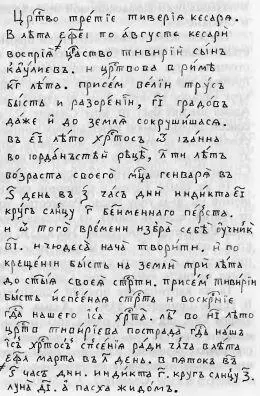 Црⷭ҇тво трѐтїе тиверїа кесарѧ.
В лѣта ҂еф҃еі по а҆ѵгусте кесари
воспрїꙗ̀ црⷭ҇аство тивирїй сы́нъ
каѵлиевъ. и црⷭ҇твова в ри́мѣ
к҃г лѣта. присем велїи трꙋсъ
бысть и разоренїи, г҃і градовъ
даже и до землѧ сокрушишасѧ.
въ е҃і лѣто хрⷭ҇тосъ ѿ іѡанна
во іѡрданьстѣй рѣцѣ, л҃ ти лѣтъ
возраста своего мцⷭ҇а генваря въ
ѕ҃ день в з҃ часъ дни индикта е҃і
кругъ слнцу г҃ беименнаго перⷭ҇та.
и ѿ того времени избра себѣ оучникъ
в҃і. и чюдеса нача творити. и по
крещенїи бысть на земли три лѣта
до ст҃ыѧ своеѧ стрⷭ҇ти. присем тивирїи
бысть и воскрⷭ҇нїе
гдⷭ҇а нашего і҆с҃а хрⷭ҇та. лѣ во н҃і лѣто
црⷭ҇тва тивирїева пострада гдⷭ҇ь нашъ
і҆с҃ъ хрⷭ҇тосъ спⷭ҇сенїѧ ради в лѣта
марта въ л҃ день. в пятокъ въ
ѕ҃ часъ дни. индикта г҃. кругъ слнцу з҃.
луна д҃і. а пасха жидомъ.